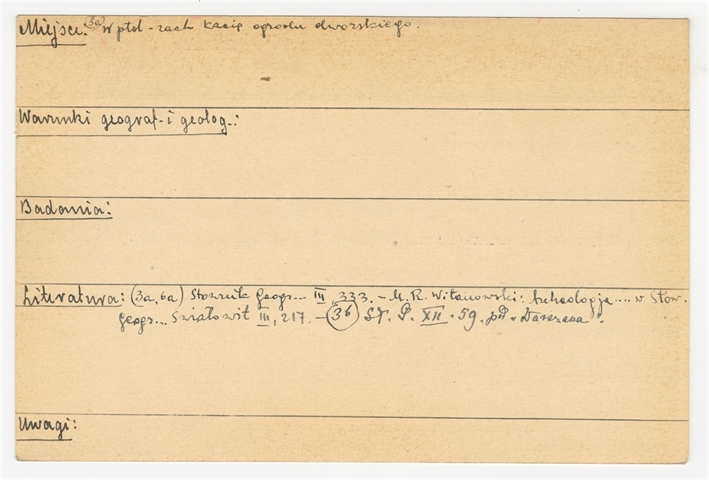 Miejsce: 3a) W płd-zach kącie ogrodu dworskiego.
Warunki geograf. i geolog.:
Badania:
Literatura: (3a, 6a) Słownik Geogr... III, 333. - M. R. Witanowski: Archeologja .... w Słow.
geogr... Światowit III, 217. - (36) Sł. G. XII. 59. pd.
Uwagi: